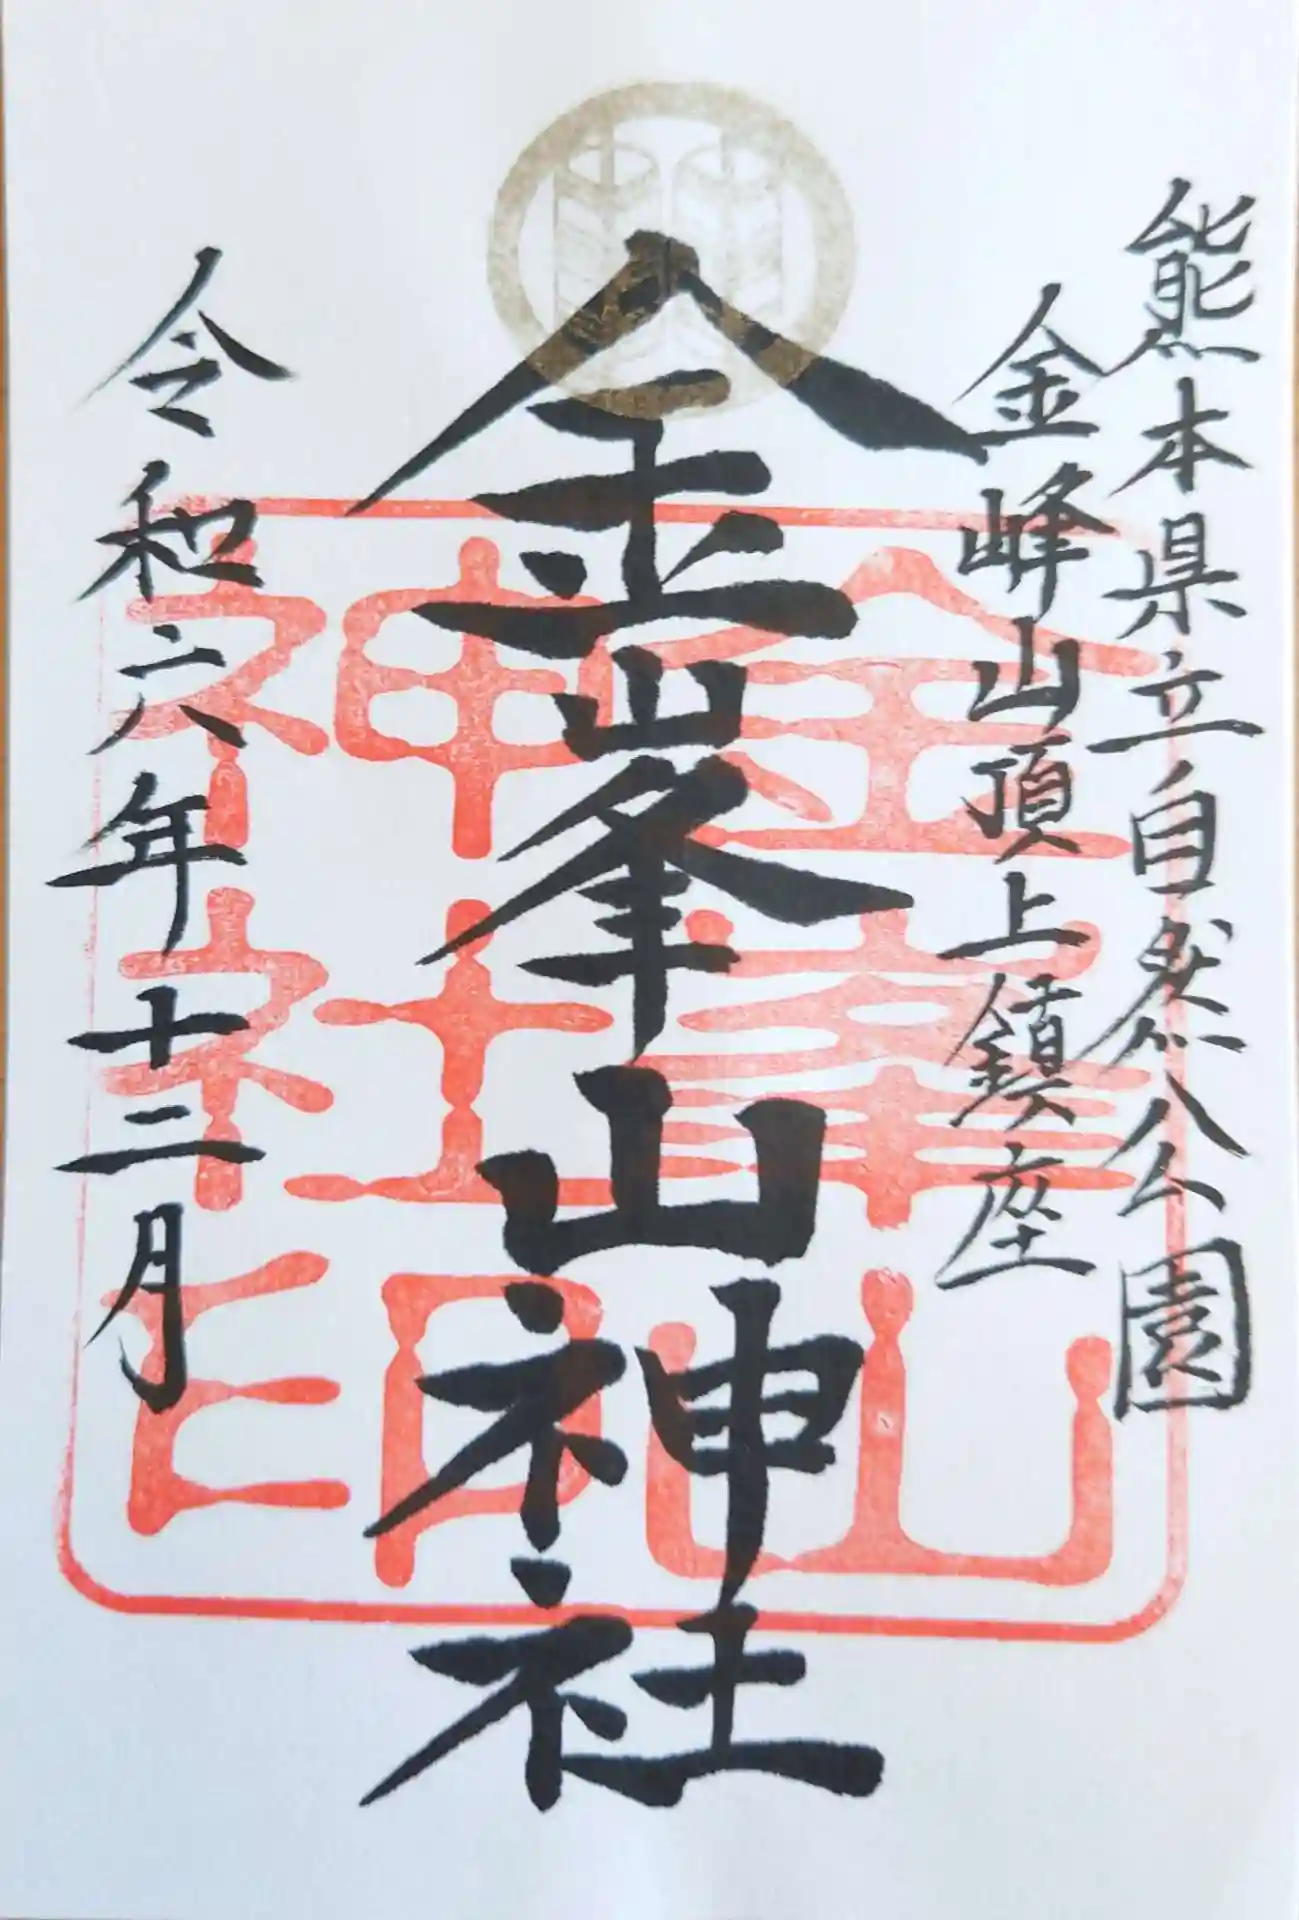 熊本県立自然公園
金峰山頂上鎮座
金峯山神社
令和六年十二月
金峯山
神社印